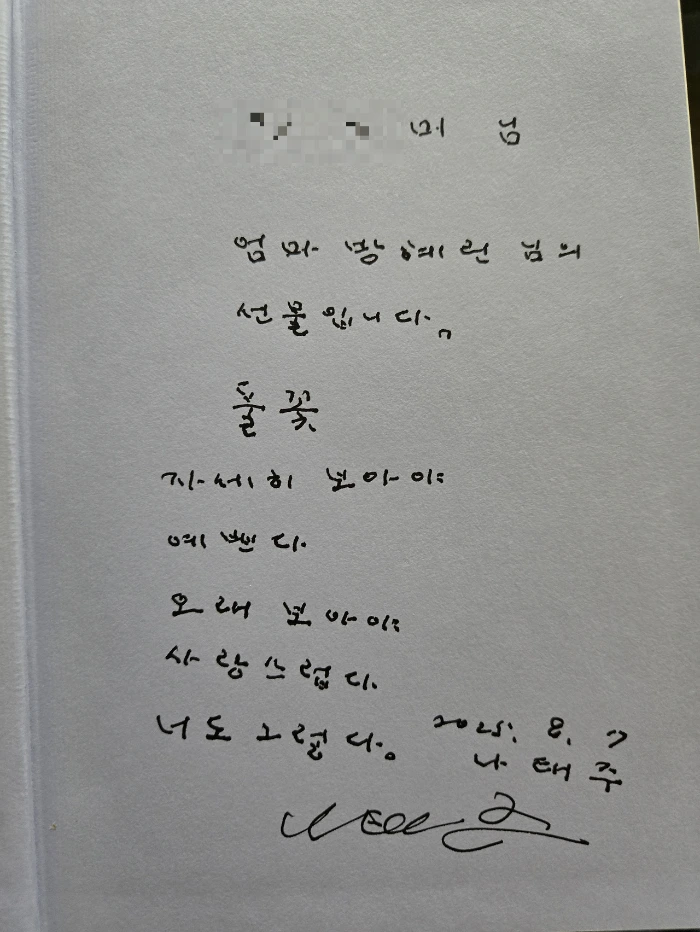 엄마 방혜련 님의
선물입니다.
풀꽃
자세히 보아야
예쁘다.
오래 보아야
사랑스럽다.
너도 그렇다.
2025. 8. 7
나태주
나태주